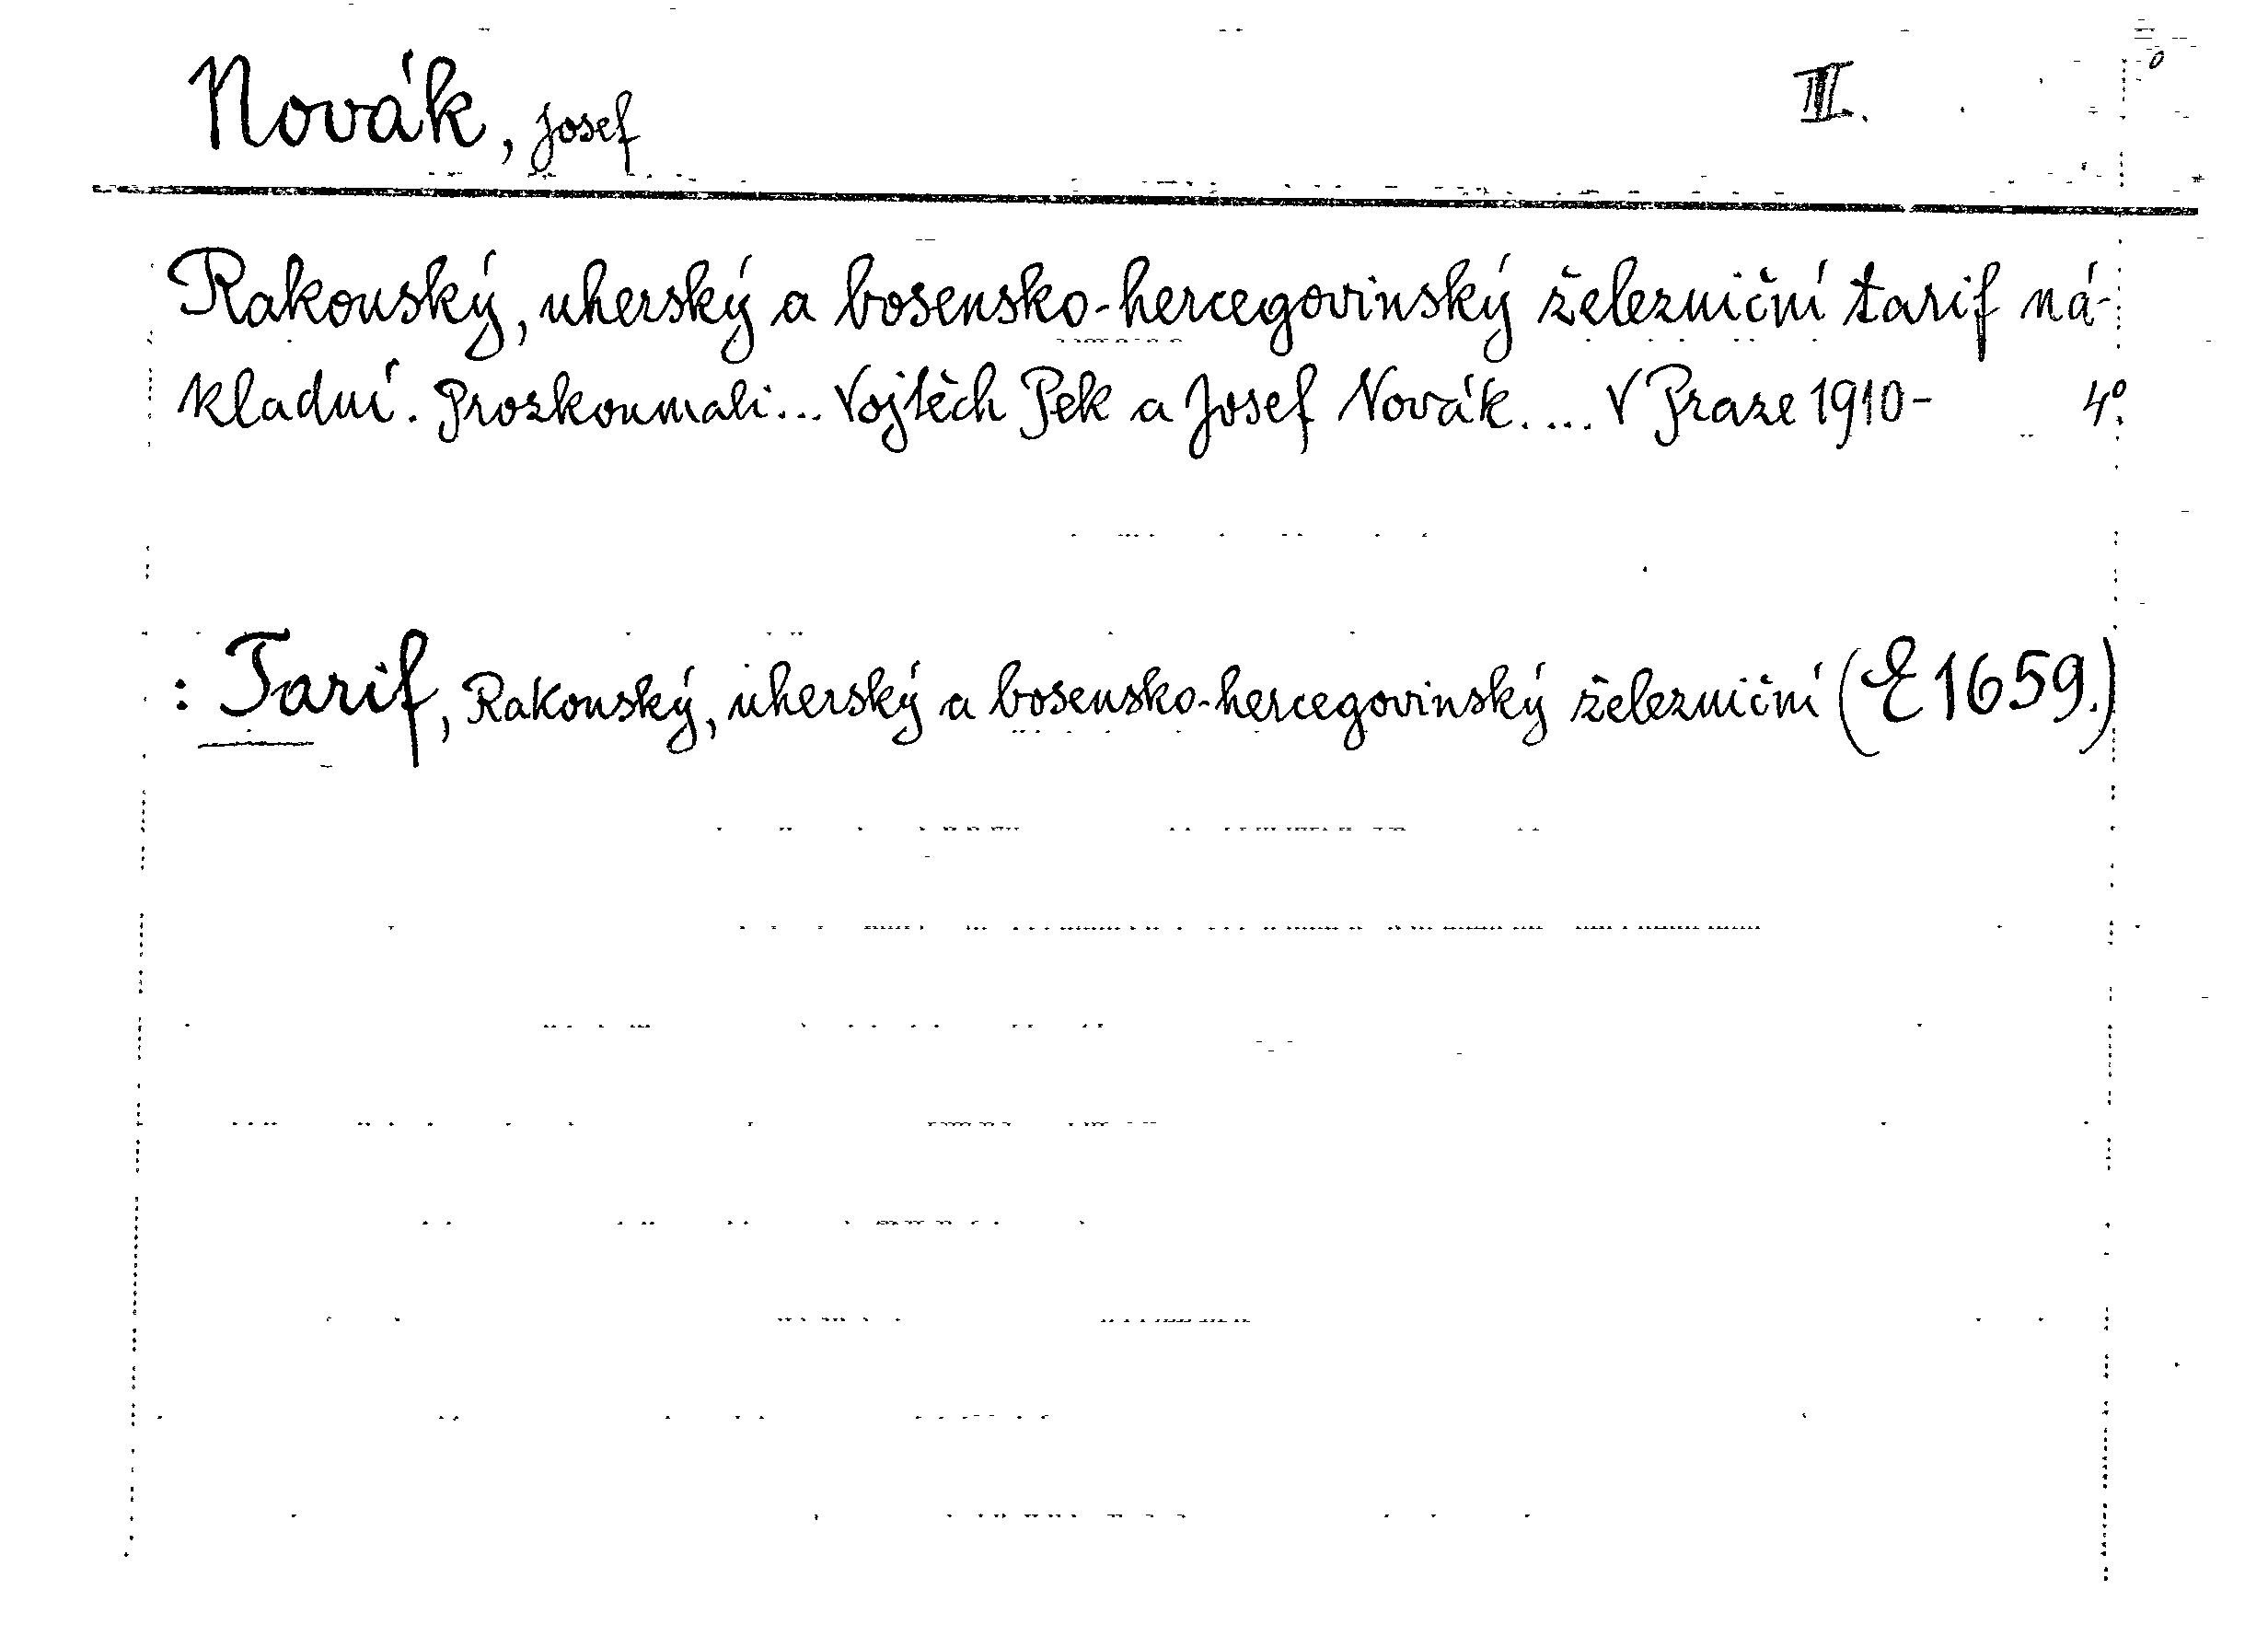 Novák, Josef III.
Rakouský, uherský a bosensko-hercegovinský železniční tarif ná-
kladní. Prozkoumali... Vojtěch Pek a Josef Novák.... V Praze 1910- 4°.
: Tarif, Rakouský, uherský a bosensko-hercegovinský železniční (E 1659.)